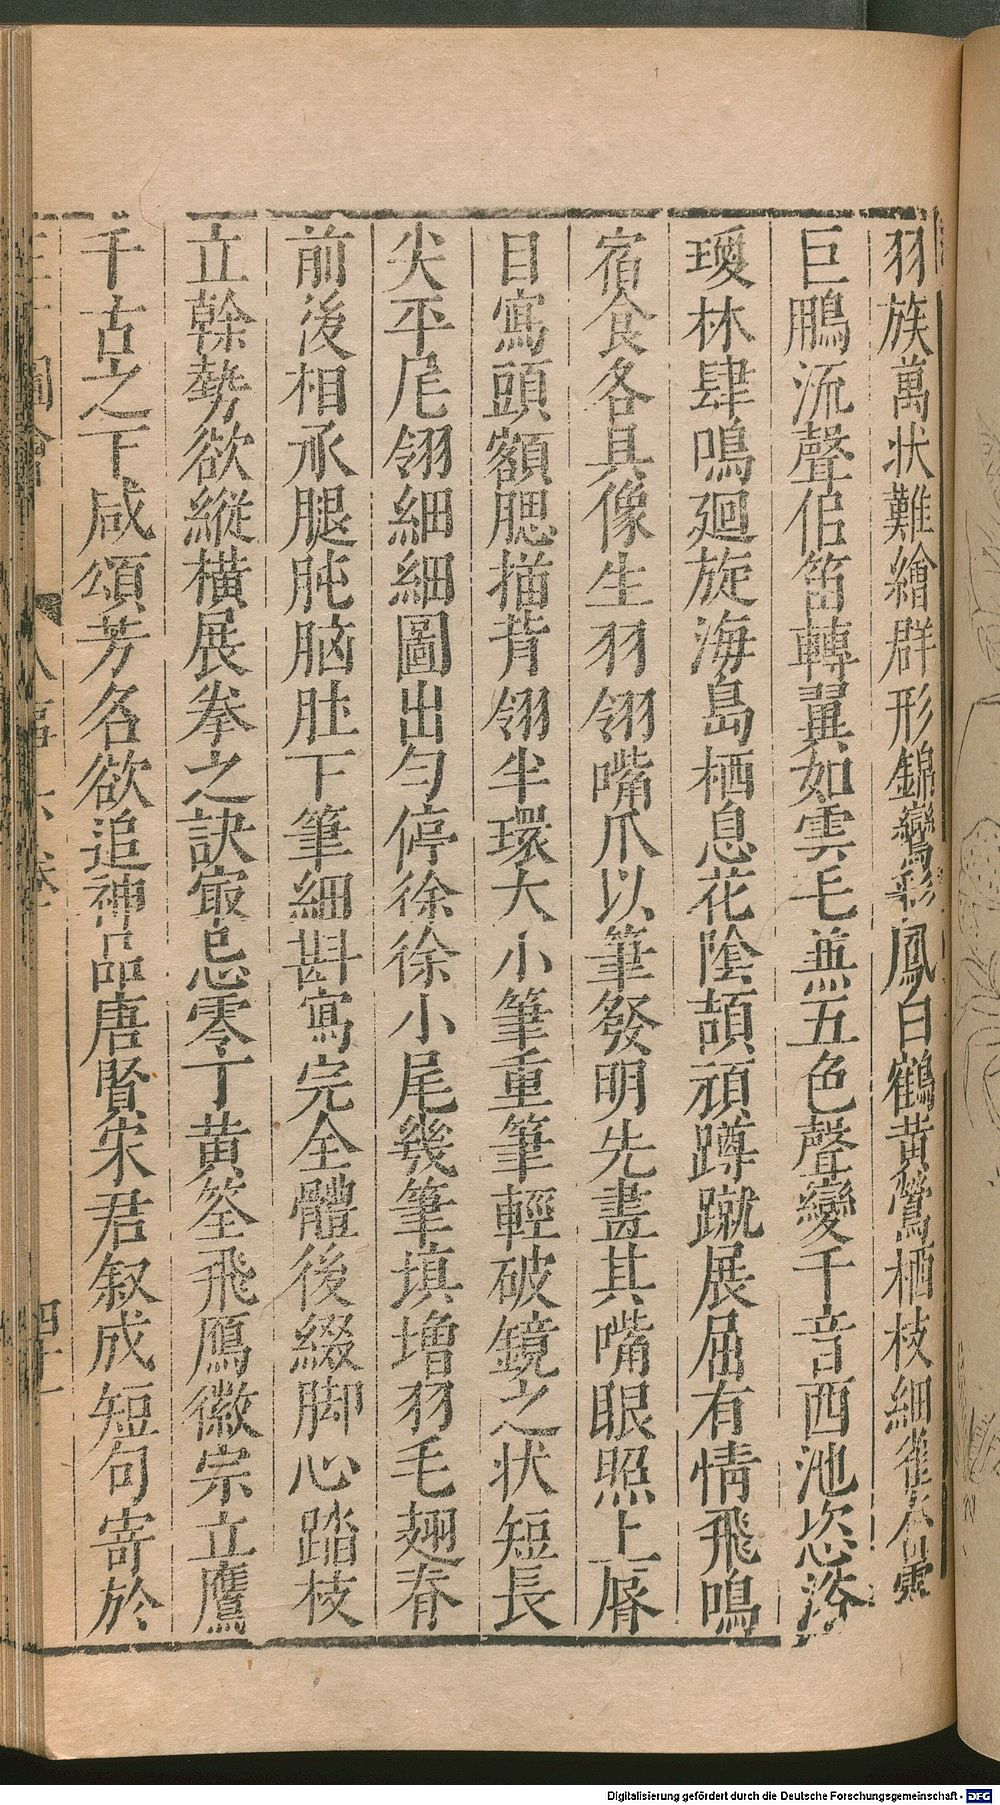 羽族萬状難繪群形錦鸞彩鳳白鶴黃鶯栖枝細雀各雲
巨鵬流聲侣笛轉翼如雲毛兼五色聲變千音西池恣浴
瓊林肆鳴廻旋海島栖息花陰頡頏蹲蹴展屈有情飛鳴
宿食各具像生羽翎嘴爪以筆發明先畫其嘴眼照上脣
目寫頭額腮描背翎半環大小筆重筆輕破鏡之状短長
尖平尾翎細細圖出勻停徐徐小尾幾筆填增羽毛翅脊
前後相承腿肫腦肚下筆細斟寫完全體後綴脚心踏枝
立幹勢欲縱横展拳之訣㝡忌零丁黃筌飛鴈徽宗立鷹
千古之下咸頌芳名欲追神品唐賢宋君叙成短句寄於
三才圖會 人事六卷 四十一
Digitalisierung gefördert durch die Deutsche Forschungsgemeinschaft - DFG